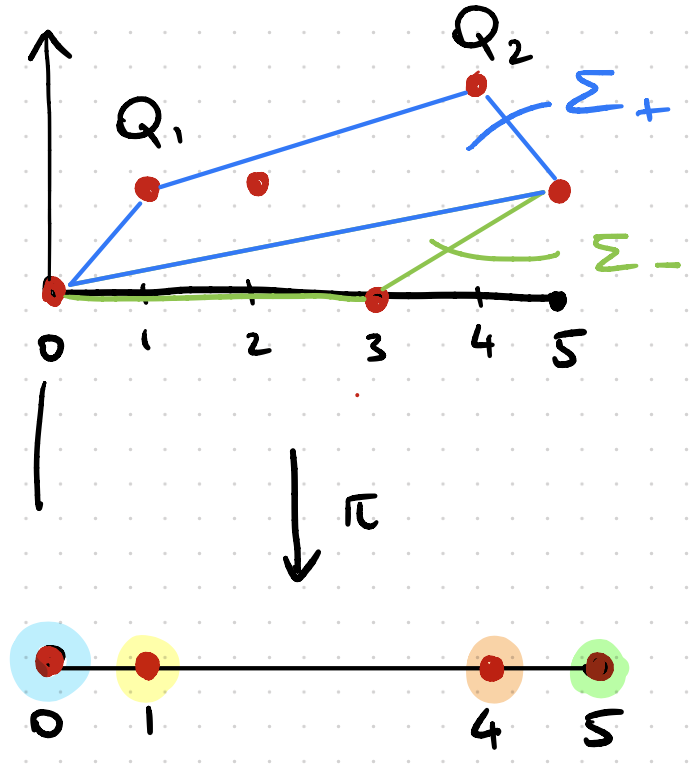 Q₂
Σ₊
Q₁
Σ₋
0 1 2 3 4 5
π
0 1 4 5